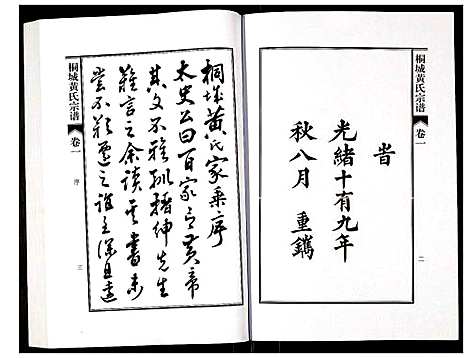 桐城黄氏宗谱
卷一
旹
光緒十有九年
秋八月 重鐫
二
桐城黄氏家乘序
太史公曰百家言黄帝
其文不雅馴搢紳先生
難言之余讀其書未
嘗不歎
桐城黄氏宗谱
卷一
序
三